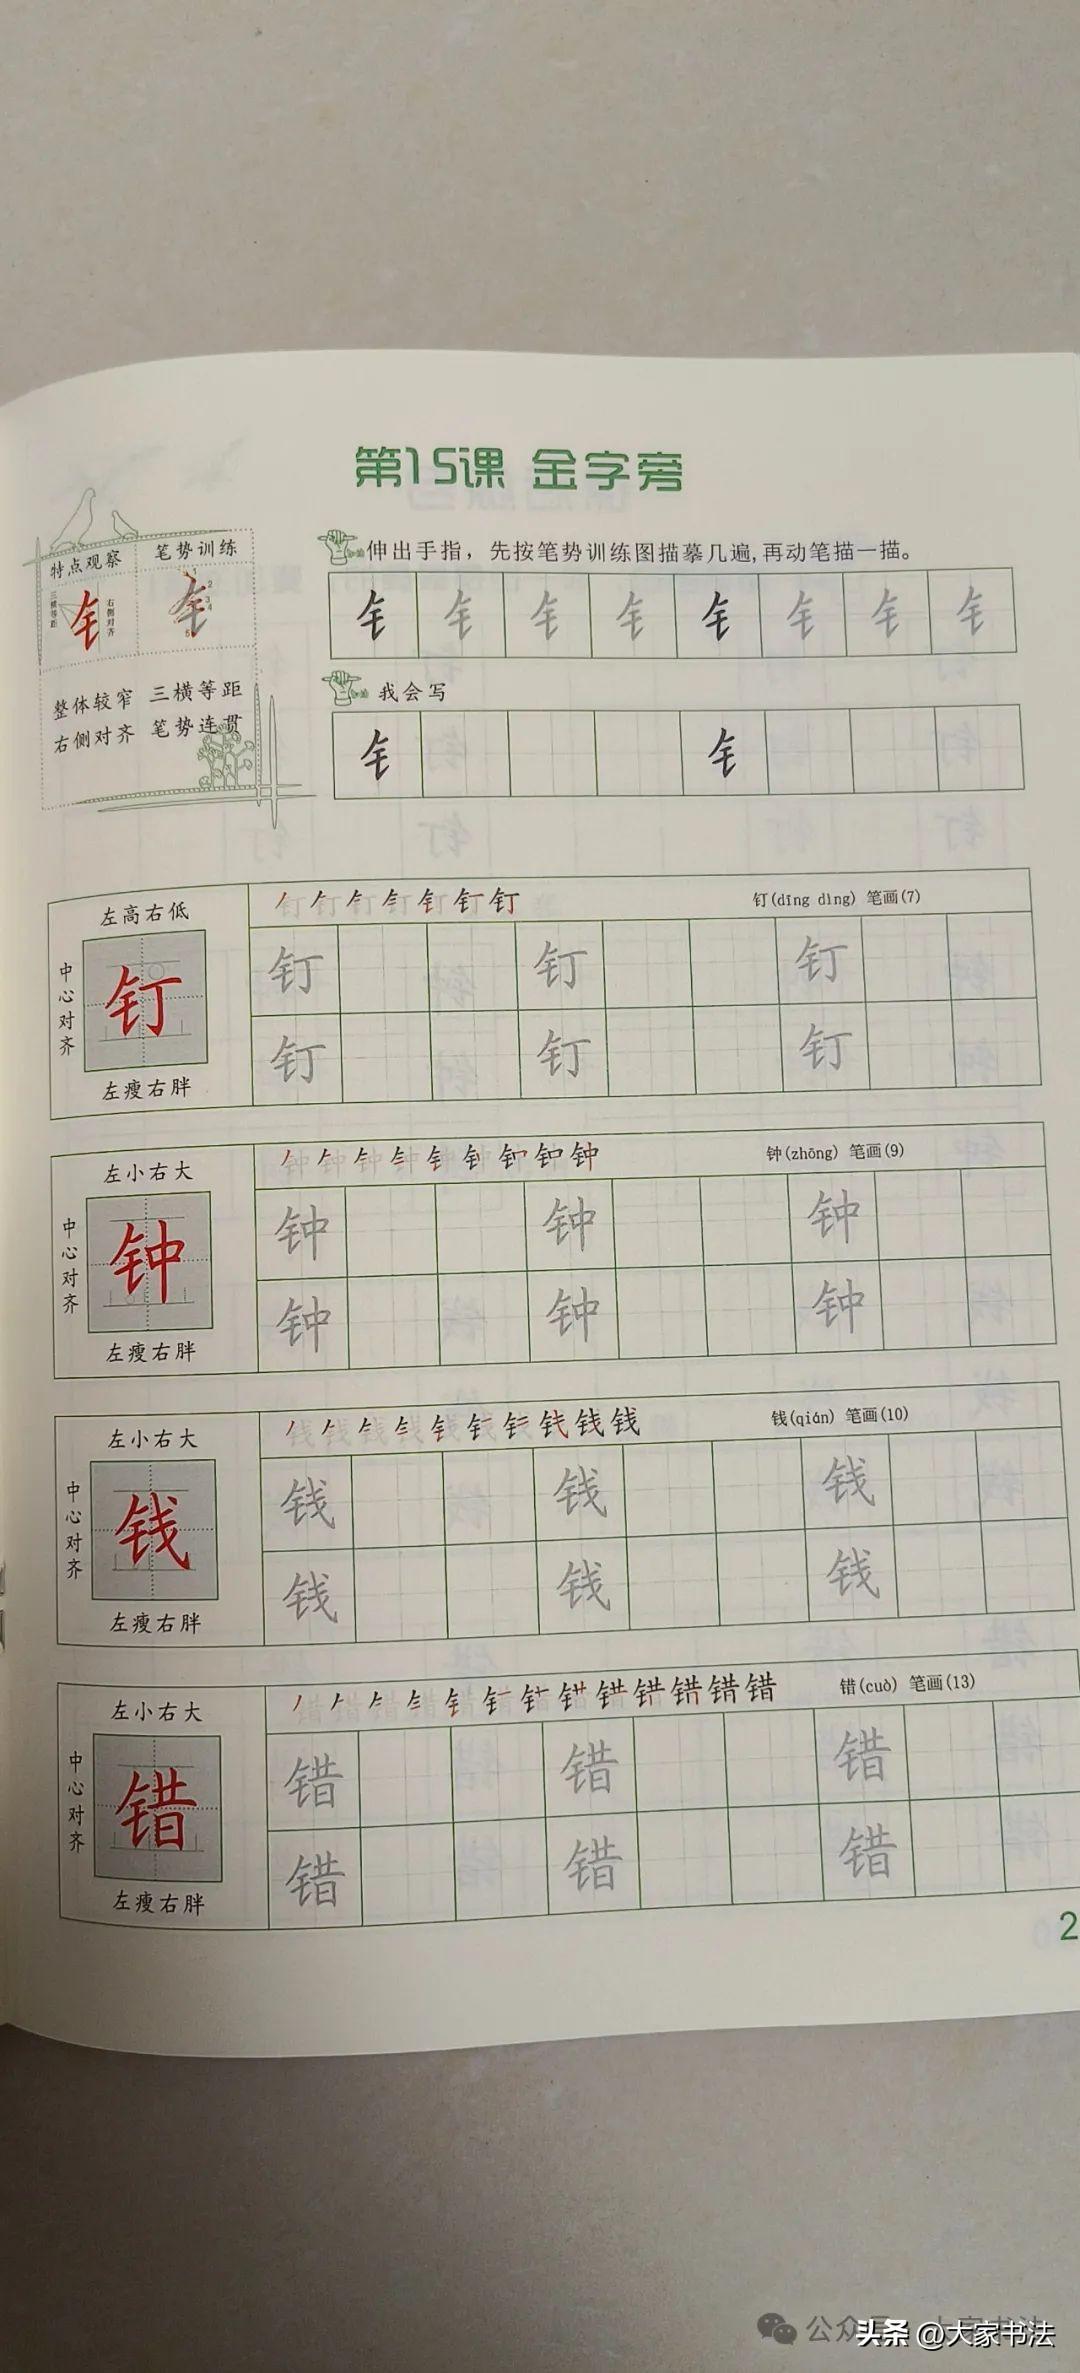 第15课 金字旁
特点观察 笔势训练
三横等距
右侧对齐
1 2 3 4 5
整体较窄 三横等距
右侧对齐 笔势连贯
伸出手指，先按笔势训练图描摹几遍,再动笔描一描。
钅 钅 钅 钅 钅 钅 钅 钅
我会写
钅 钅
左高右低
中心对齐
钉
左瘦右胖
钉(dīng dìng) 笔画(7)
钉 钉 钉
钉 钉 钉
左小右大
中心对齐
钟
左瘦右胖
钟(zhōng) 笔画(9)
钟 钟 钟
钟 钟 钟
左小右大
中心对齐
钱
左瘦右胖
钱(qián) 笔画(10)
钱 钱 钱
钱 钱 钱
左小右大
中心对齐
错
左瘦右胖
错(cuò) 笔画(13)
错 错 错
错 错 错
2
公众号
头条 @大家书法